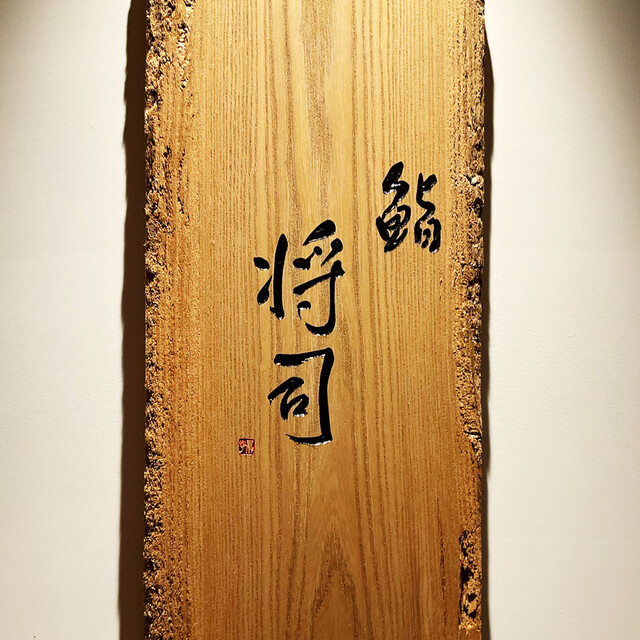 鮨
将司